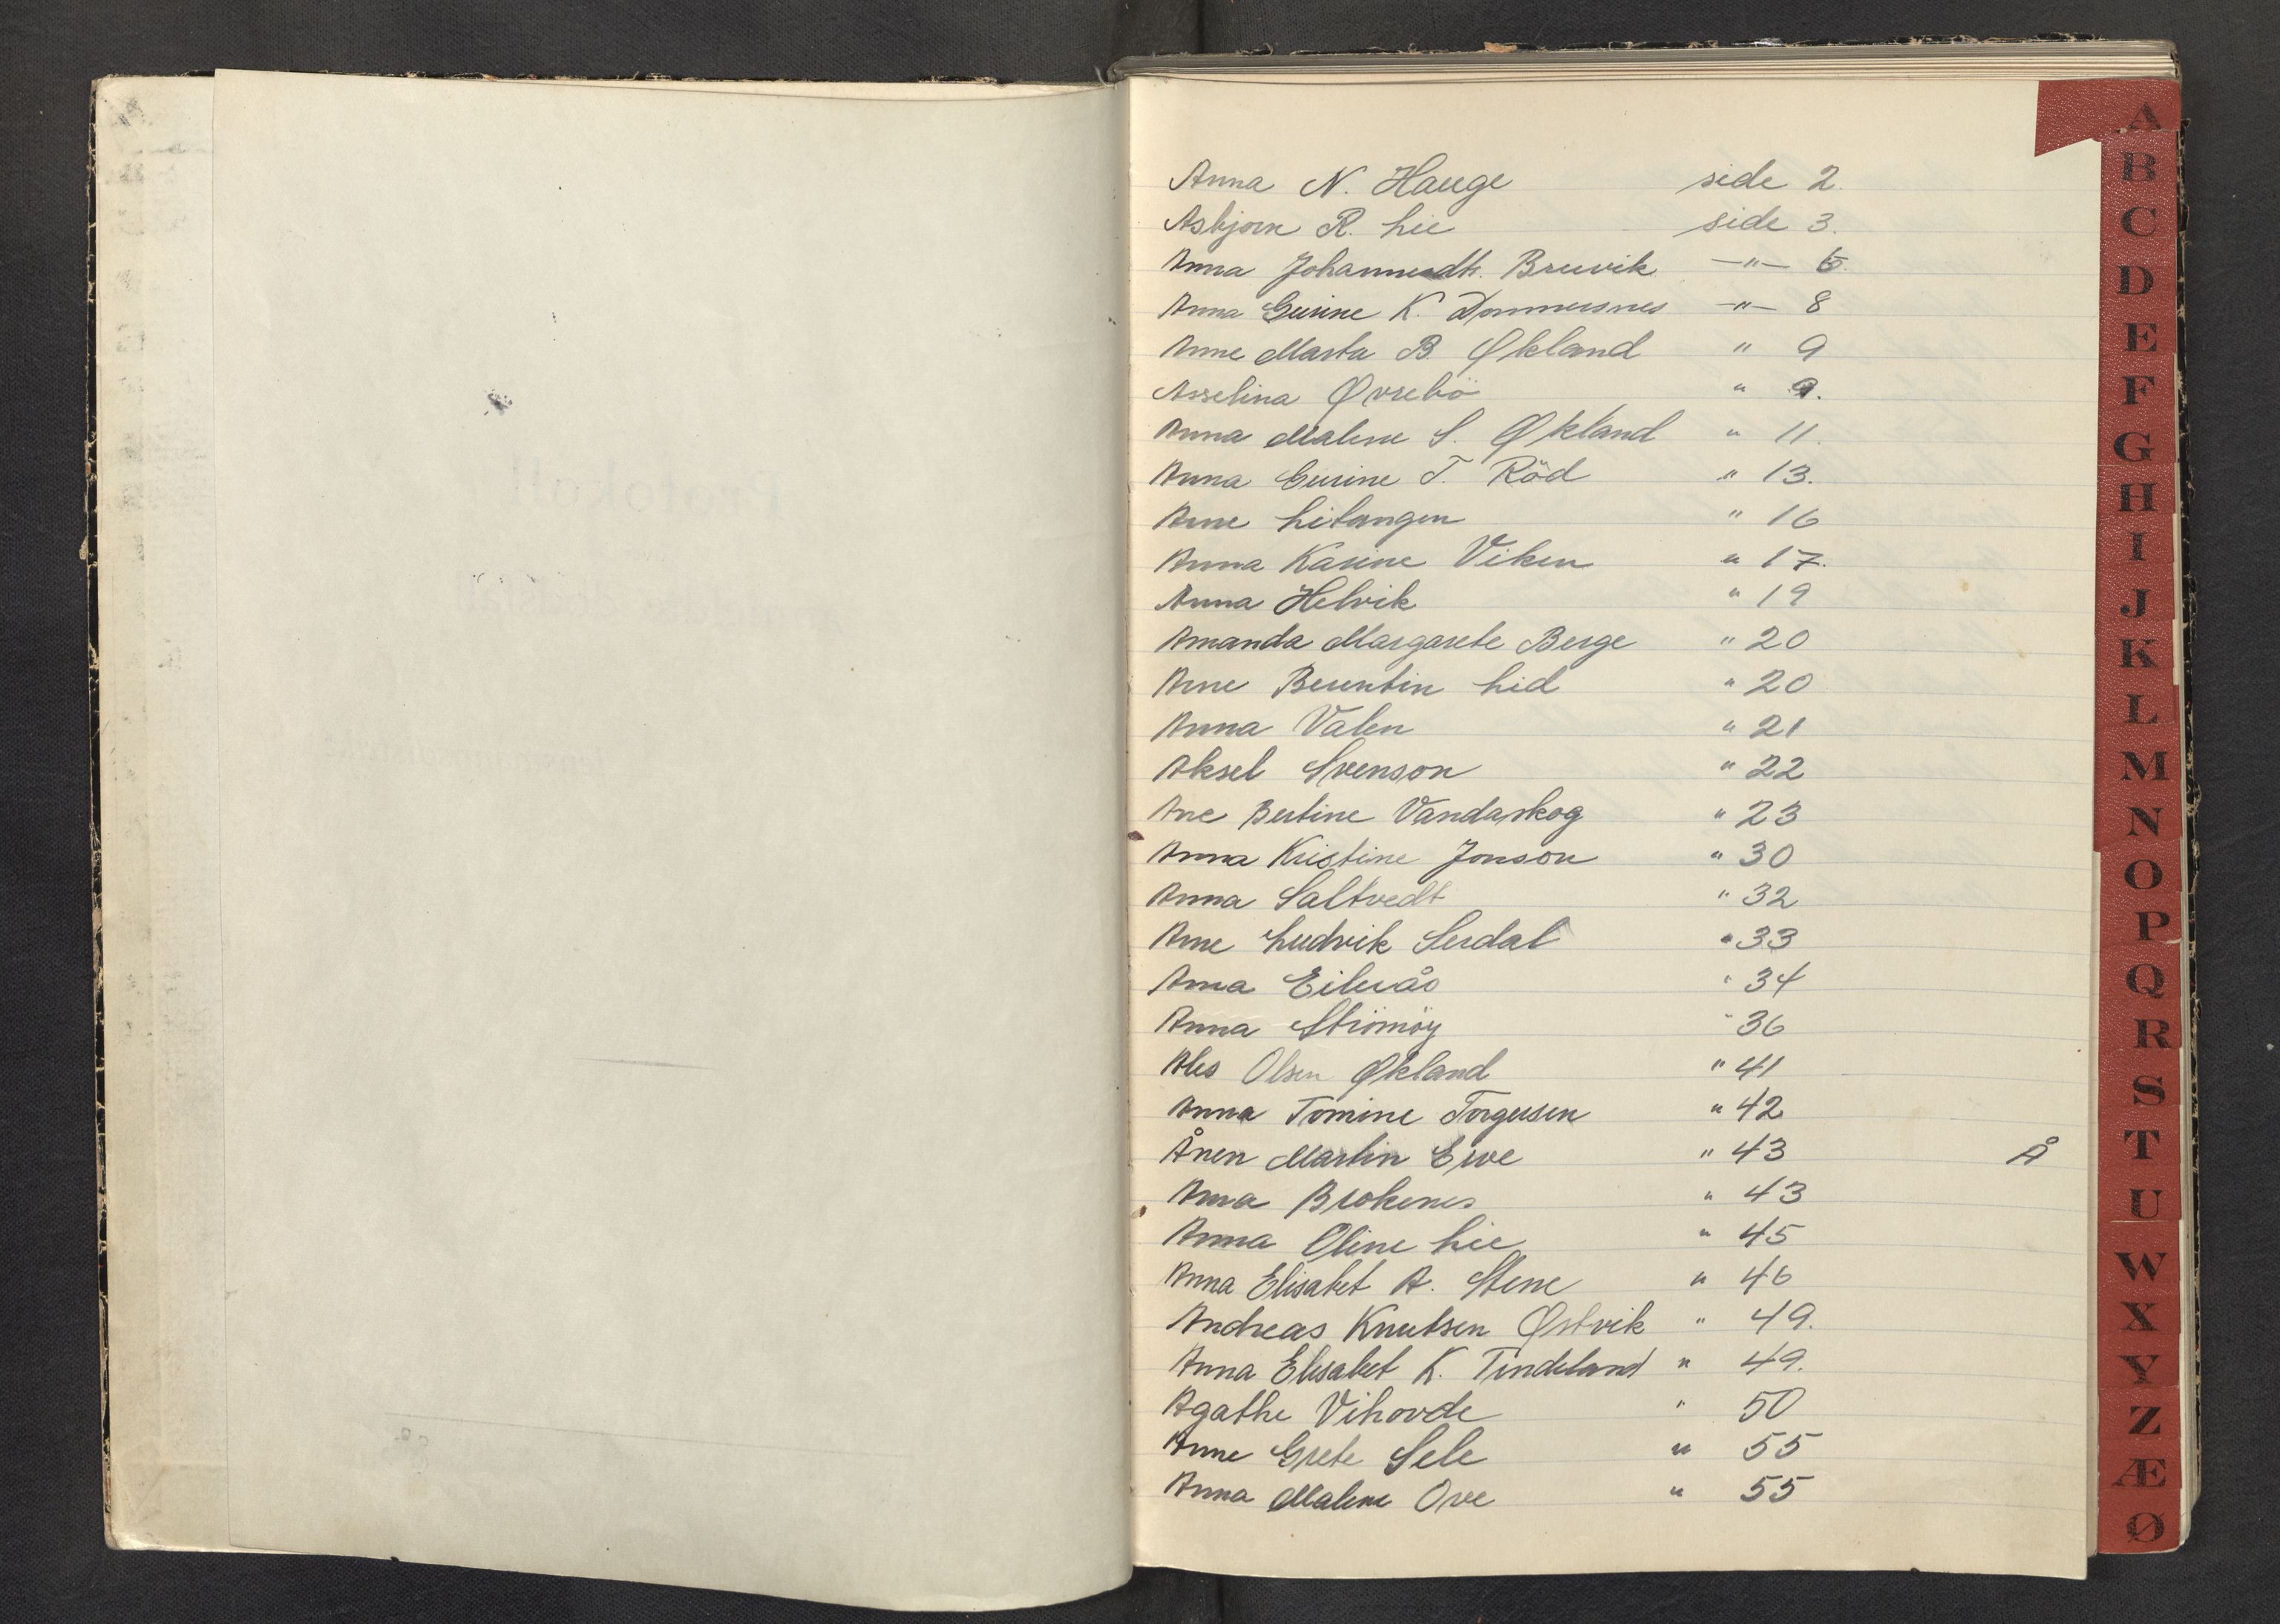 Anna N. Hauge side 2.
Asbjørn R. Lie side 3.
Anna Johannesdtr. Bruvik —"— 6.
Anna Gurine K. Dommersnes —"— 8
Anne Marta B. Økland " 9
Asselina Øvrebö " 9.
Anna Malene S. Økland " 11.
Anna Gurine T. Röd " 13.
Arne Litangen " 16
Anna Karine Viken " 17.
Anna Helvik " 19
Amanda Margarete Berge " 20
Arne Berentin Lid " 20
Anna Valen " 21
Aksel Svenson " 22
Ane Bertine Vandaskog " 23
Anna Kristine Jonson " 30
Anna Saltvedt " 32
Arne Ludvik Serdal " 33
Anna Eileraas " 34
Anna Strömöy " 36
Als Olsen Økland " 41
Anna Tomine Torgersen " 42
Ånen Martin Erve " 43 Å
Anna Brokenes " 43
Anna Oline Lie " 45
Anna Elisabet A. Stene " 46
Andreas Knutsen Østvik " 49.
Anna Elisabet K. Tindeland " 49.
Agathe Vihovde " 50
Anne Grete Sele " 55
Anna Malene Ove " 55
A
B
C
D
E
F
G
H
I
J
K
L
M
N
O
P
Q
R
S
T
U
W
X
Y
Z
Æ
Ø